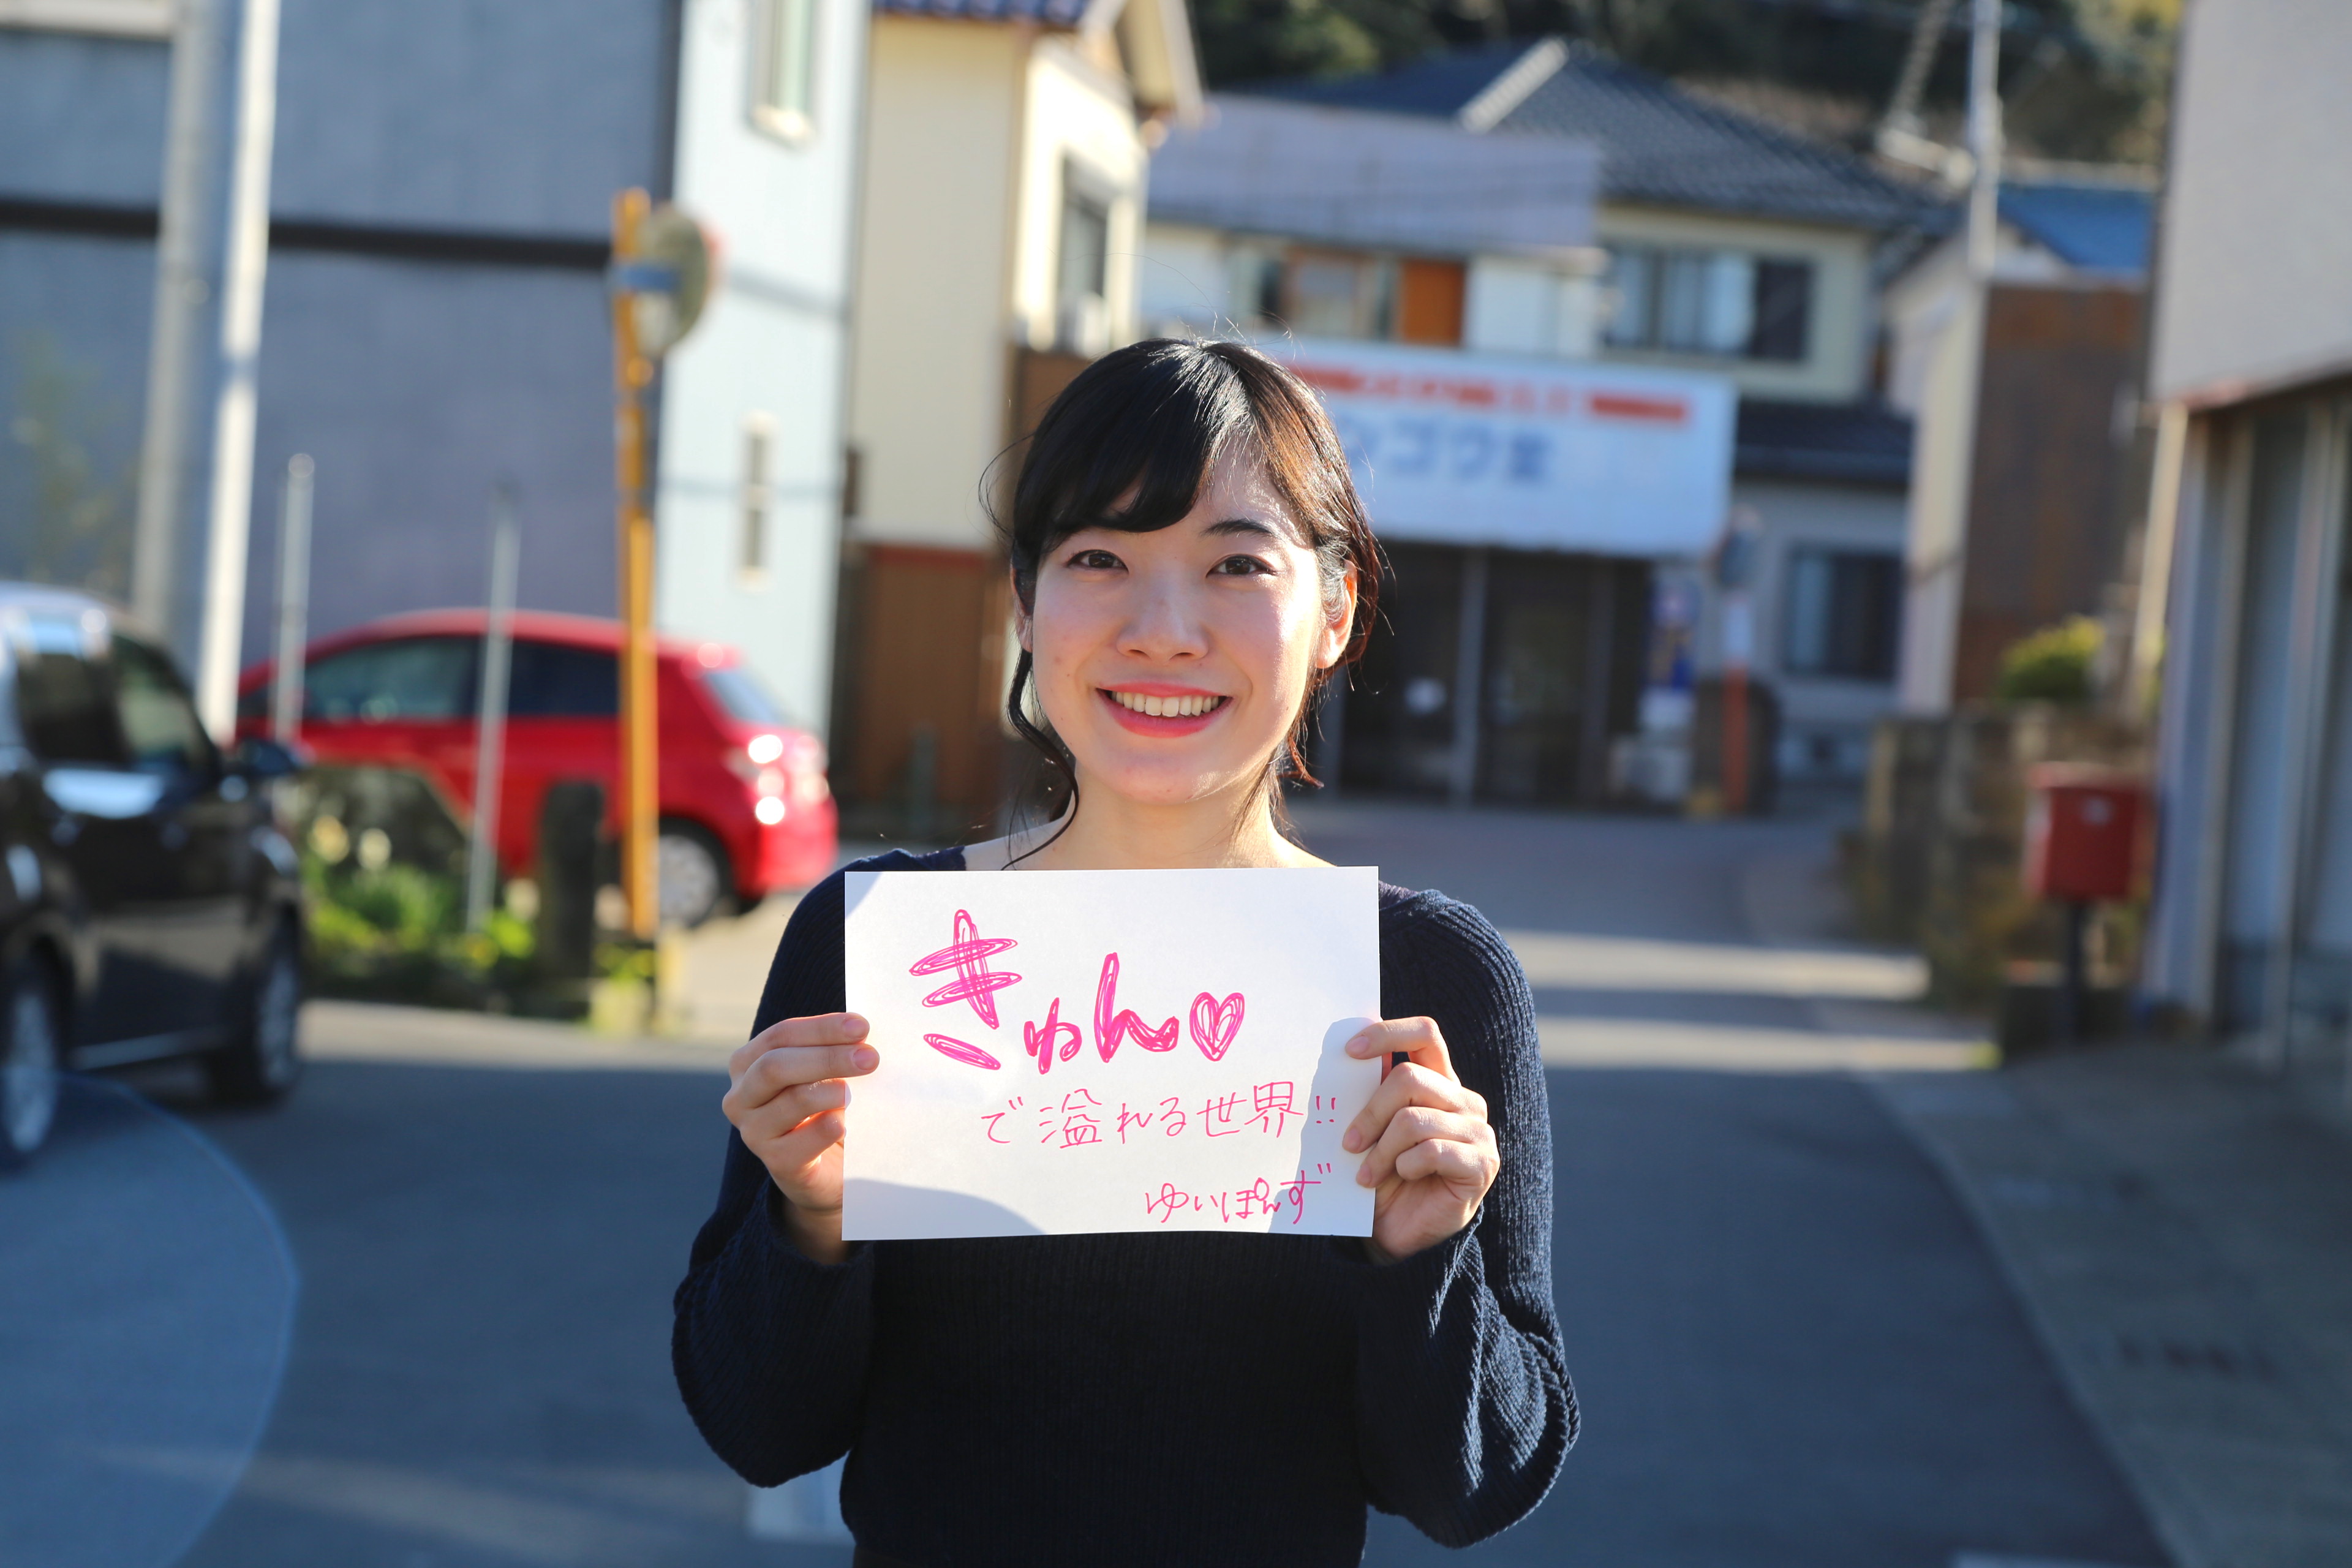 きゅん♡
で溢れる世界!!
ゆいぽんず